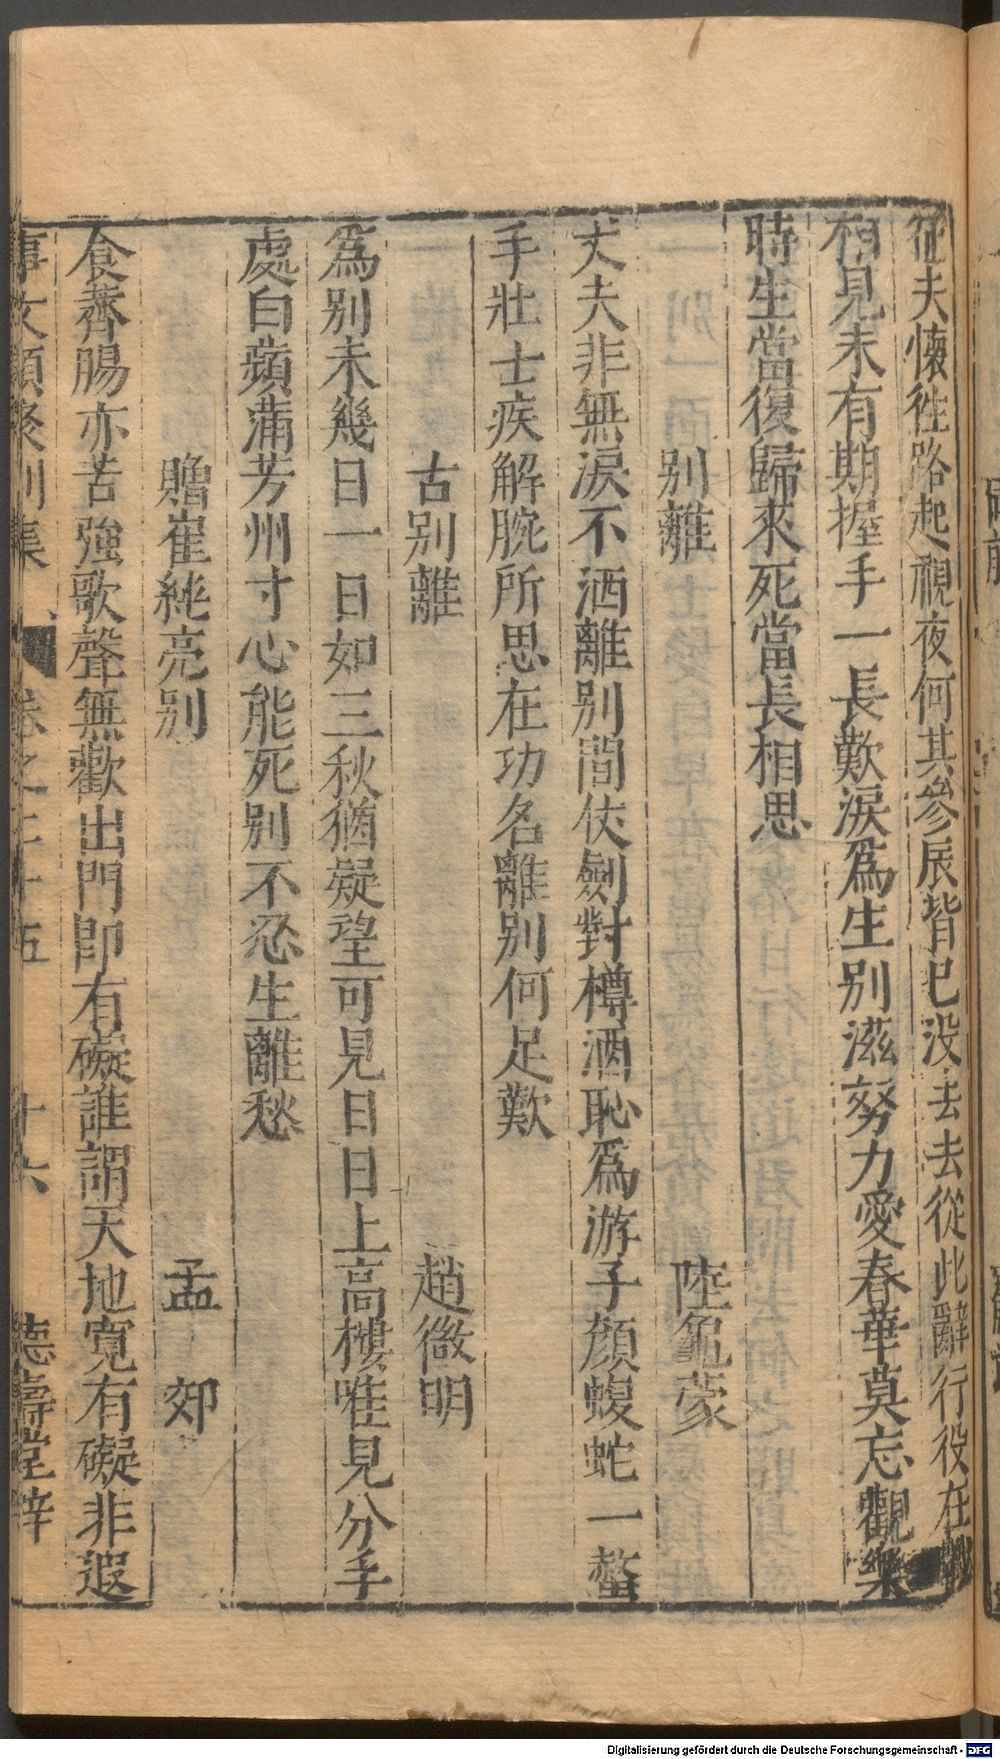 征夫懷徃路起視夜何其參辰皆巳没去去從此辭行役在戰
相見未有期握手一長歎淚爲生別滋努力愛春華莫忘觀樂
時生當復歸來死當長相思
別離 陸龜蒙
丈夫非無淚不洒離別間仗劍對樽酒恥爲游子顏蝮蛇一螫
手壯士疾解腕所思在功名離別何足歎
古別離 趙微明
爲別未幾日一日如三秋猶疑望可見日日上高樓唯見分手
處白蘋滿芳州寸心能死別不忍生離愁
贈崔純亮別 孟郊
食薺腸亦苦強歌聲無歡出門即有礙誰謂天地寛有礙非遐
事文類聚別集 卷之二十五 十六 德壽堂梓
Digitalisierung gefördert durch die Deutsche Forschungsgemeinschaft - DFG